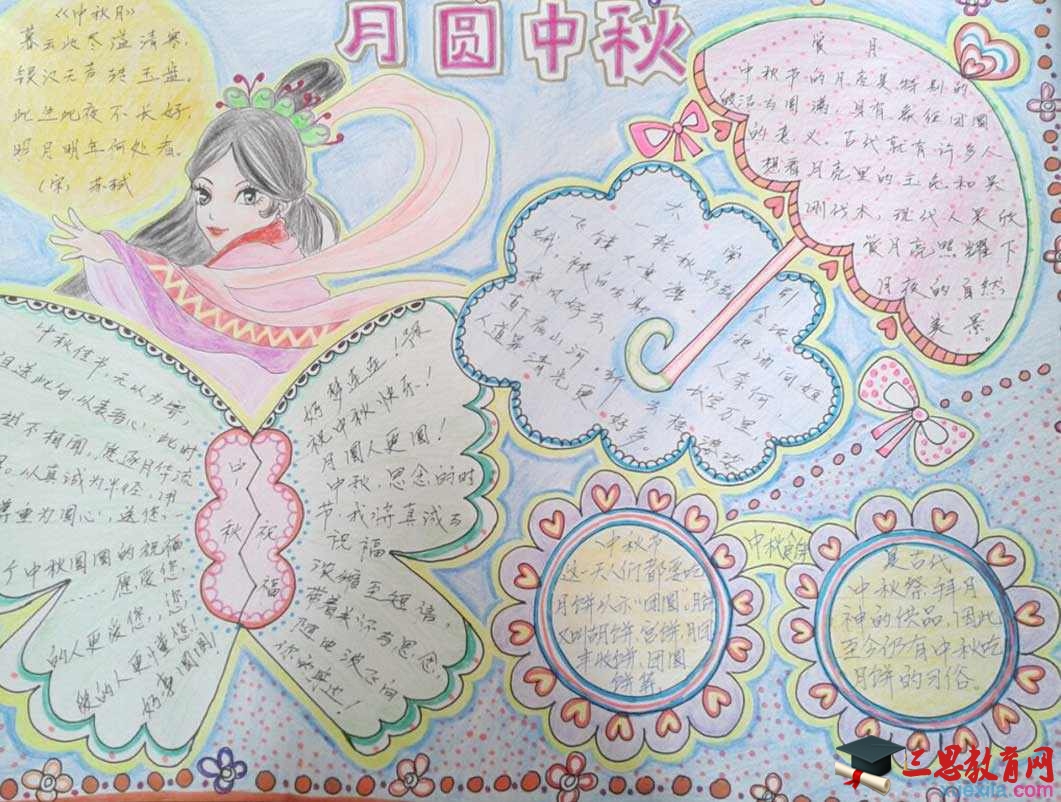 月圆中秋
《中秋月》
暮云收尽溢清寒，
银汉无声转玉盘。
此生此夜不长好，
明月明年何处看。
（宋）苏轼
赏月
中秋节的月亮是特别的
皎洁与圆满，具有象征团圆
的意义。古代就有许多人
想着月亮里的玉兔和吴
刚伐木，现代人更欣
赏月亮照耀下
月夜的自然
美景。
中秋佳节，无以为寄，
但送此句，以表吾心：此时
望不相闻，愿逐月华流
君。以真诚为半径，用
尊重为圆心，送您一
个中秋圆圆的祝福
……愿爱您
的人更爱您，您
的人更懂您！
好事圆圆！
中秋
祝福
好梦连连！预
祝中秋快乐！
月圆人更圆！
中秋，思念的时
节，我将真诚的
祝福
浓缩至短语，
带着关怀与思念，
随电波飞向
你的身边！
中秋节
这一天人们都要吃
月饼以示"团圆"。月饼
又叫胡饼、宫饼、月团
丰收饼、团圆
饼等，
中秋美食
是古代
中秋祭拜月
神的供品，因此
至今仍有中秋吃
月饼的习俗。
三思教育网